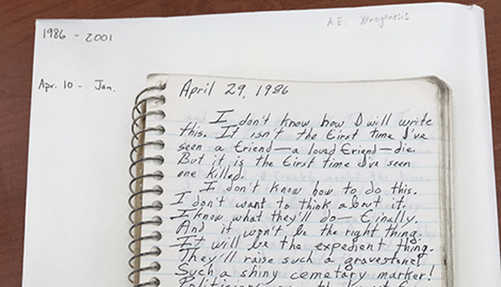 1986 - 2001
A.E. Xenogenesis
Apr. 10 - Jan.
April 29, 1986
I don't know how I will write
this. It isn't the first time I've
seen a friend—a loved friend—die.
But it is the first time I've seen
one killed.
I don't know how to do this.
I don't want to think about it.
I know what they'll do—finally.
And it won't be the right thing.
It will be the expedient thing.
They'll raise such a gravestone!
Such a shiny cemetary marker!